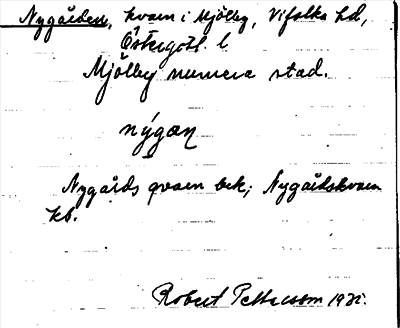 Nygården, kvarn i Mjölby, Vifolka hd,
Östergötl. l.
Mjölby numera stad.
nýgan
Nygårds qvarn bek; Nygårdskvarn
kb.
Robert Pettersson 1931.